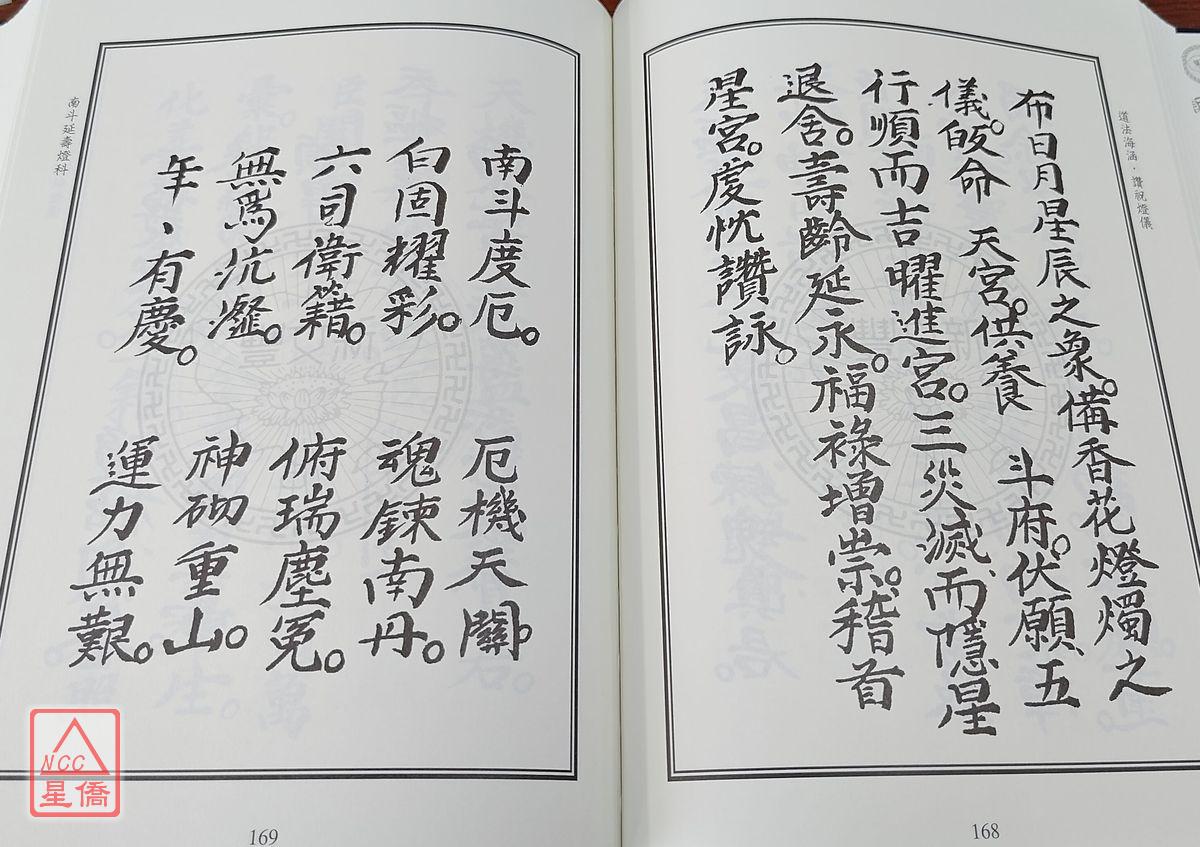 道法海涵．讚祝燈儀
布日月星辰之象。備香花燈燭之
儀。皈命　天宮。供養　斗府。伏願五
行順而吉曜進宮。三災滅而隱星
退舍。壽齡延永。福祿增崇。稽首
星宮。虔忱讚詠。
168
南斗度厄。　厄機天關。
白固耀彩。　魂鍊南丹。
六司衛籍。　俯瑞塵冤。
無為沆瀣。　神砌重山。
年、有慶。　運力無艱。
南斗延壽燈科
169
NCC
星僑